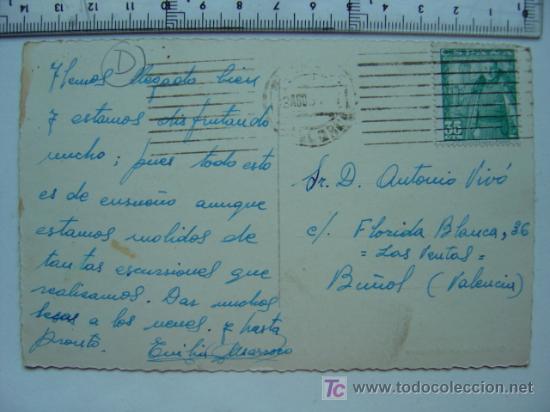 14 13 12 11 10 9 8 7 6 5 4 3 2 1 0
D
Hemos llegado bien
y estamos disfrutando
mucho; pues todo esto
es de ensueño aunque
estamos molidos de
tantas escursiones que
realizamos. Dar muchos
besos a los nenes. y hasta
pronto. Emilio
35
Sr. D. Antonio Vivó
c/. Florida Blanca, 36
= Las Ventas =
Buñol (Valencia)
todocolección
© www.todocoleccion.net